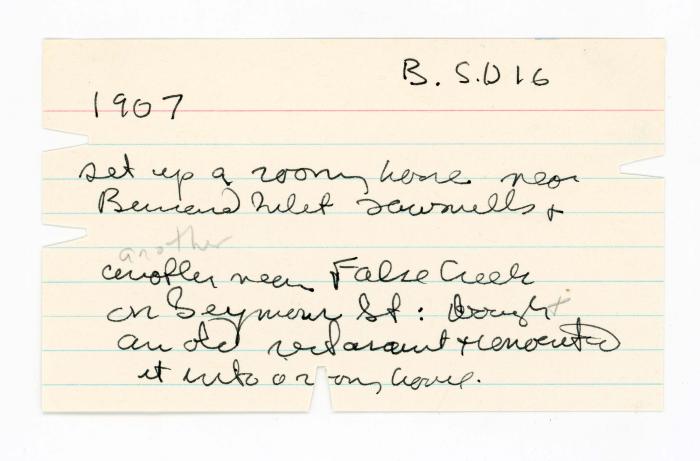 B. S.D 16
1907
set up a rooming house near
Burrard Inlet sawmills +
another
another near False Creek
on Seymour St: bought
an old restaurant + renovated
it into a rooming house.